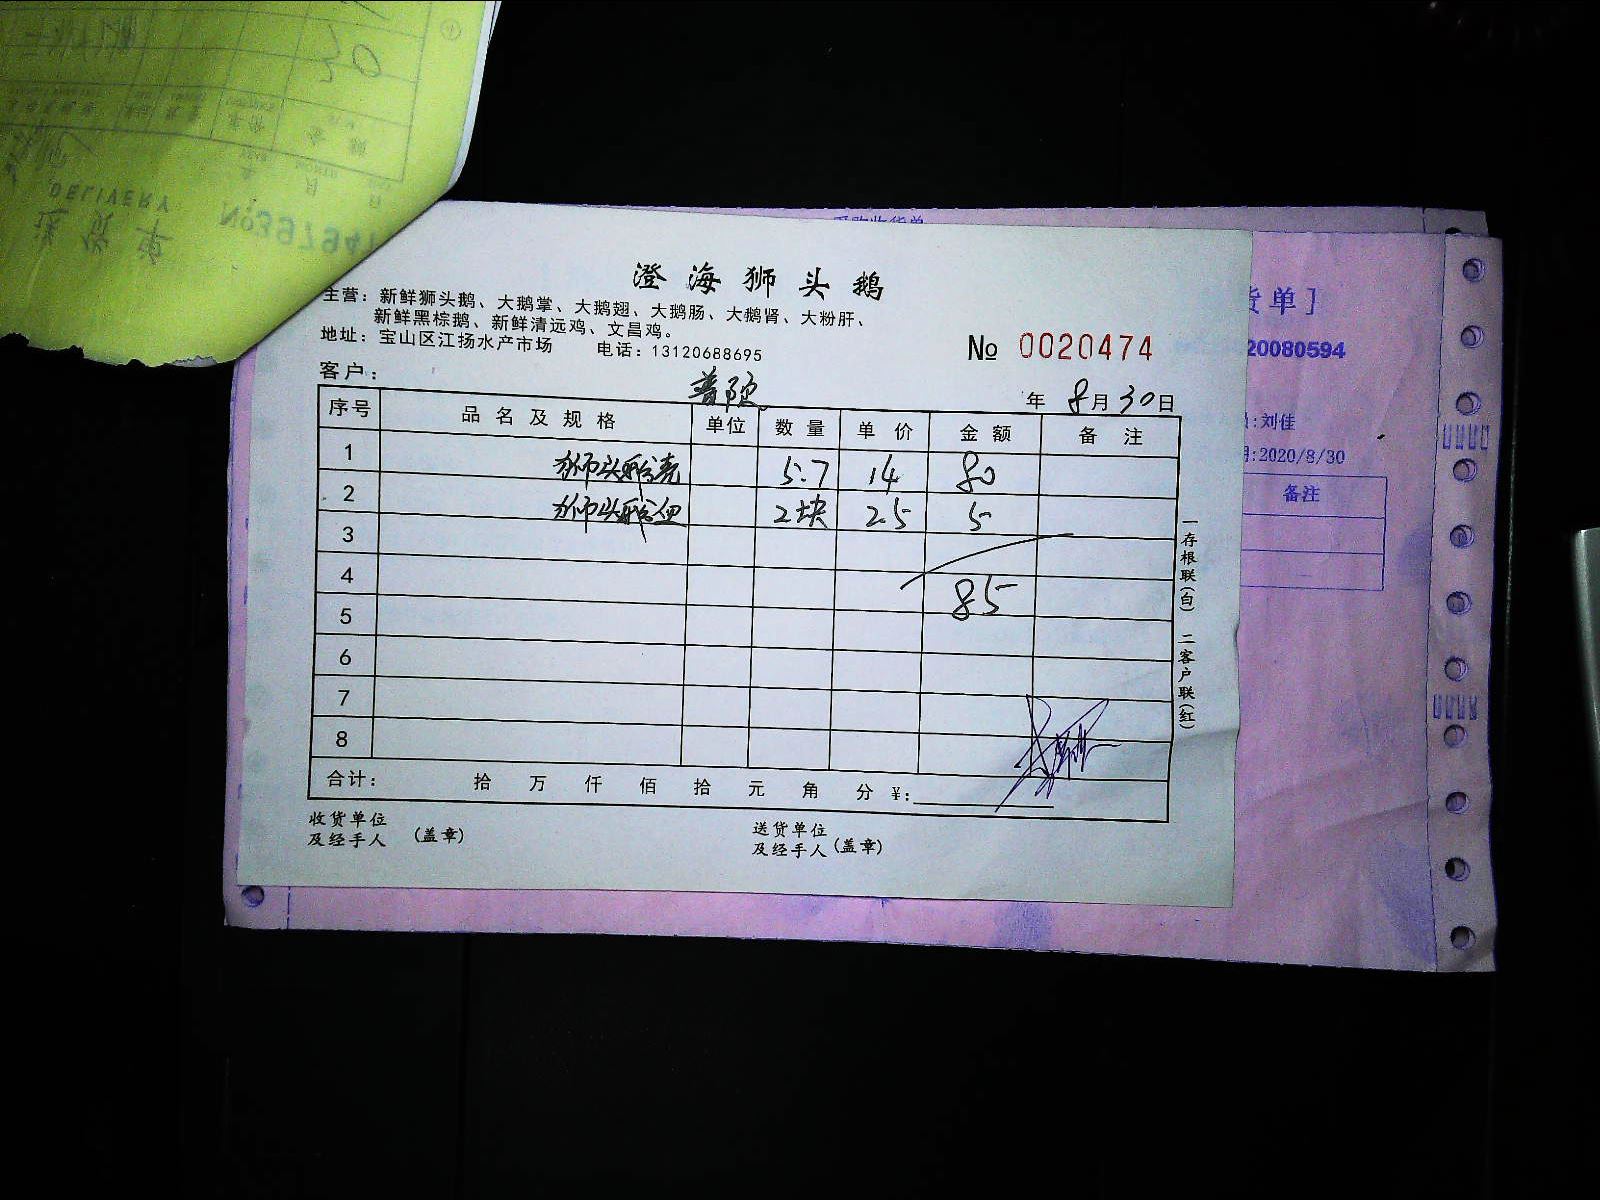 DELIVERY
送 货 单
采购收货单
货单]
20080594
员:刘佳
期:2020/8/30
备注
澄海狮头鹅
主营：新鲜狮头鹅、大鹅掌、大鹅翅、大鹅肠、大鹅肾、大粉肝、
新鲜黑棕鹅、新鲜清远鸡、文昌鸡。
地址：宝山区江扬水产市场 电话：13120688695
№ 0020474
客户：
年 8月30日
序号 品名及规格 单位 数量 单价 金额 备注
1 狮头鹅壳 5.7 14 80
2 狮头鹅 2块 2.5 5
3
4 85
5
6
7
8
合计： 拾 万 仟 佰 拾 元 角 分 ¥：
收货单位
及经手人 (盖章)
送货单位
及经手人 (盖章)
一存根联(白) 二客户联(红)